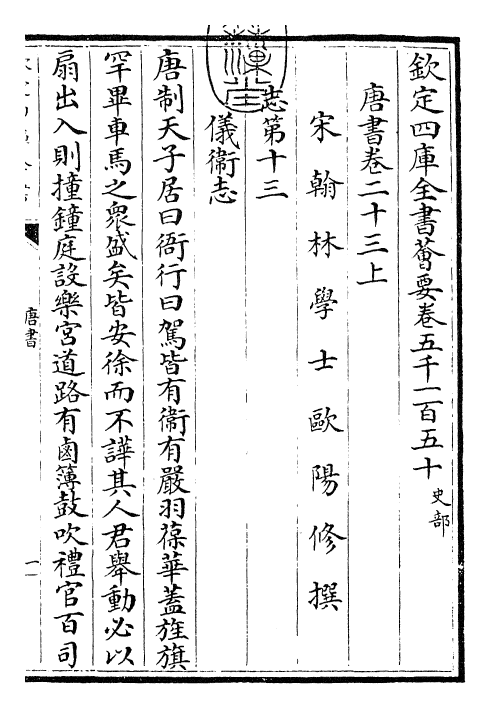 欽定四庫全書薈要卷五千一百五十 史部
唐書卷二十三上
宋翰林學士歐陽修撰
志第十三
儀衛志
唐制天子居曰衙行曰駕皆有衛有嚴羽葆華蓋旌旗
罕畢車馬之衆盛矣皆安徐而不譁其人君舉動必以
扇出入則撞鐘庭設樂宮道路有鹵簿鼓吹禮官百司
唐書